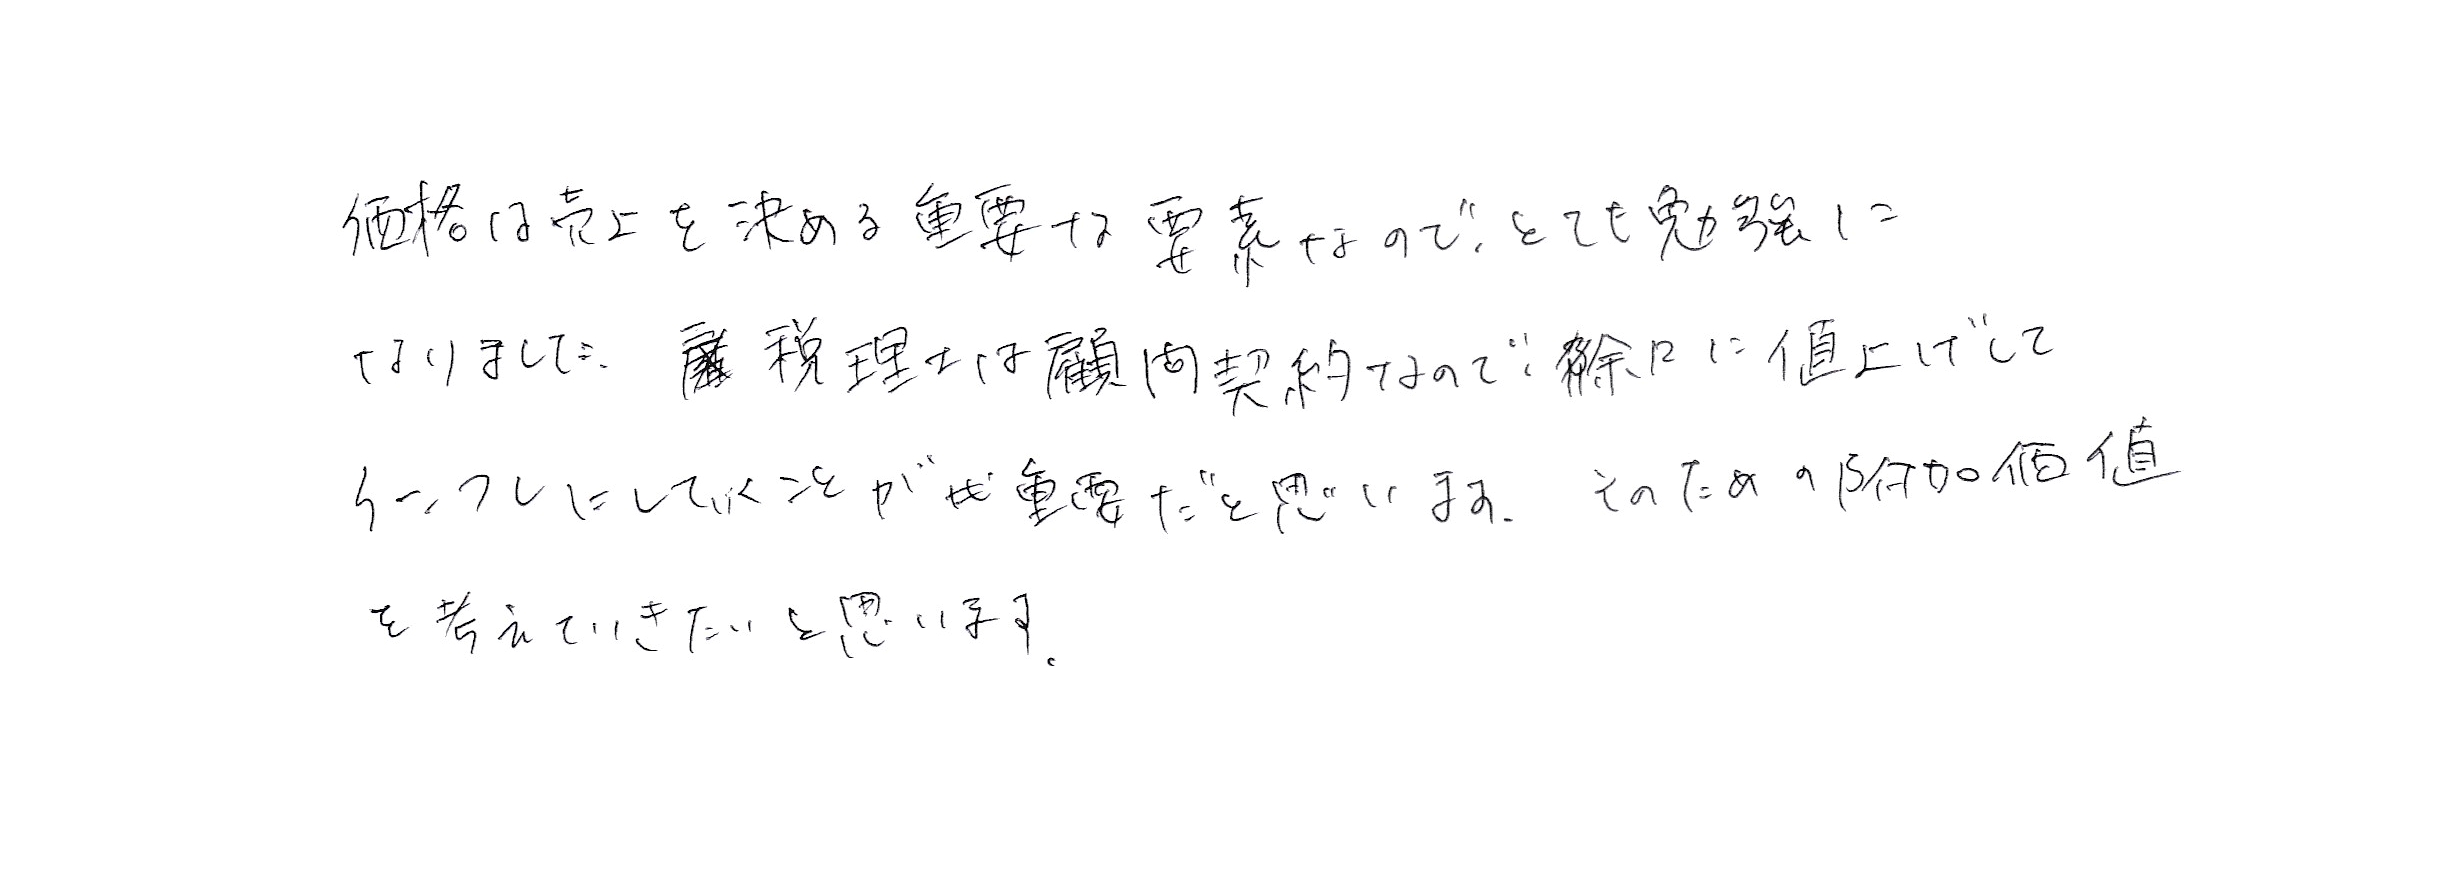 価格は売上を決める重要な要素なので、とても勉強に
なりました。税理士は顧問契約なので、徐々に値上げして
インフレにしていくことが重要だと思います。そのための付加価値
を考えていきたいと思います。